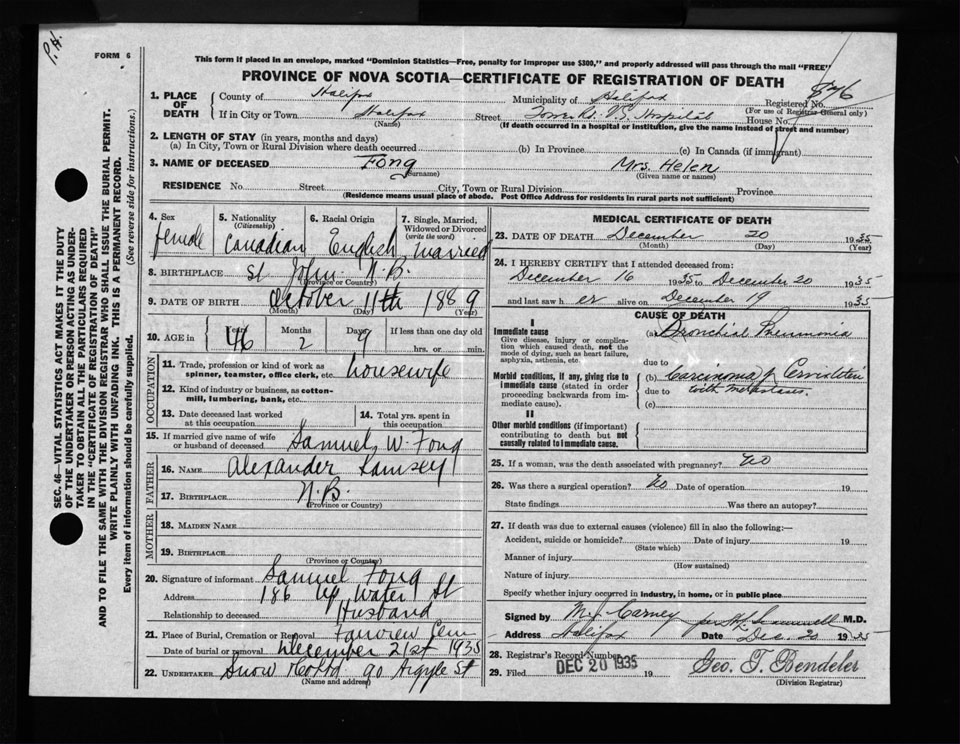 P.H.
FORM 6
This form if placed in an envelope, marked "Dominion Statistics—Free, penalty for improper use $300," and properly addressed will pass through the mail "FREE"
PROVINCE OF NOVA SCOTIA—CERTIFICATE OF REGISTRATION OF DEATH
826
1. PLACE OF DEATH
County of Halifax Municipality of Halifax Registered No.
(For use of Registrar General only)
If in City or Town Halifax Street V.G. Hospital House No.
(Name) (If death occurred in a hospital or institution, give the name instead of street and number)
2. LENGTH OF STAY (in years, months and days)
(a) In City, Town or Rural Division where death occurred (b) In Province (c) In Canada (if immigrant)
3. NAME OF DECEASED Fong Mrs. Helen
(Surname) (Given name or names)
RESIDENCE No. Street City, Town or Rural Division Province
(Residence means usual place of abode. Post Office Address for residents in rural parts not sufficient)
4. Sex female
5. Nationality (Citizenship) Canadian
6. Racial Origin English
7. Single, Married, Widowed or Divorced (write the word) Married
8. BIRTHPLACE St John N.B.
(Province or Country)
9. DATE OF BIRTH October 11th 1889
(Month) (Day) (Year)
10. AGE in Years 46 Months 2 Days 9 If less than one day old
hrs. or min.
OCCUPATION
11. Trade, profession or kind of work as spinner, teamster, office clerk, etc. housewife
12. Kind of industry or business, as cotton-mill, lumbering, bank, etc.
13. Date deceased last worked at this occupation
14. Total yrs. spent in this occupation
15. If married give name of wife or husband of deceased Samuel W. Fong
FATHER
16. NAME Alexander Ramsey
17. BIRTHPLACE N.B.
(Province or Country)
MOTHER
18. MAIDEN NAME
19. BIRTHPLACE
(Province or Country)
20. Signature of informant Samuel Fong
Address 186 Up Water St
Relationship to deceased Husband
21. Place of Burial, Cremation or Removal Fairview Cem
Date of burial or removal December 21st 1935
22. UNDERTAKER Snow & Co Ltd 90 Argyle St
(Name and address)
MEDICAL CERTIFICATE OF DEATH
23. DATE OF DEATH December 20 1935
(Month) (Day) (Year)
24. I HEREBY CERTIFY that I attended deceased from:
December 16 1935 to December 20 1935
and last saw her alive on December 19 1935
CAUSE OF DEATH
I
Immediate cause
Give disease, injury or complication which caused death, not the mode of dying, such as heart failure, asphyxia, asthenia, etc.
(a) Bronchial Pneumonia
due to
Morbid conditions, if any, giving rise to immediate cause (stated in order proceeding backwards from immediate cause).
(b) Carcinoma of Cervix
due to with metastases
(c)
II
Other morbid conditions (if important) contributing to death but not causally related to immediate cause.
25. If a woman, was the death associated with pregnancy? No
26. Was there a surgical operation? No Date of operation 19
State findings Was there an autopsy?
27. If death was due to external causes (violence) fill in also the following:—
Accident, suicide or homicide? Date of injury 19
(State which)
Manner of injury
(How sustained)
Nature of injury
Specify whether injury occurred in industry, in home, or in public place
Signed by Carney M.D.
Address Halifax Date Dec. 20 1935
28. Registrar's Record Number
29. Filed DEC 20 1935 19 Geo. T. Bendeler
(Division Registrar)
SEC. 46—VITAL STATISTICS ACT MAKES IT THE DUTY
OF THE UNDERTAKER OR PERSON ACTING AS UNDER-
TAKER TO OBTAIN ALL THE PARTICULARS REQUIRED
IN THE "CERTIFICATE OF REGISTRATION OF DEATH"
AND TO FILE THE SAME WITH THE DIVISION REGISTRAR WHO SHALL ISSUE THE BURIAL PERMIT.
WRITE PLAINLY WITH UNFADING INK. THIS IS A PERMANENT RECORD.
Every item of information should be carefully supplied. (See reverse side for instructions.)